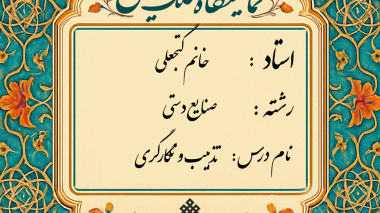 استاد : خانم گنجعلی
رشته : صنایع دستی
نام درس: تذهیب و نگارگری